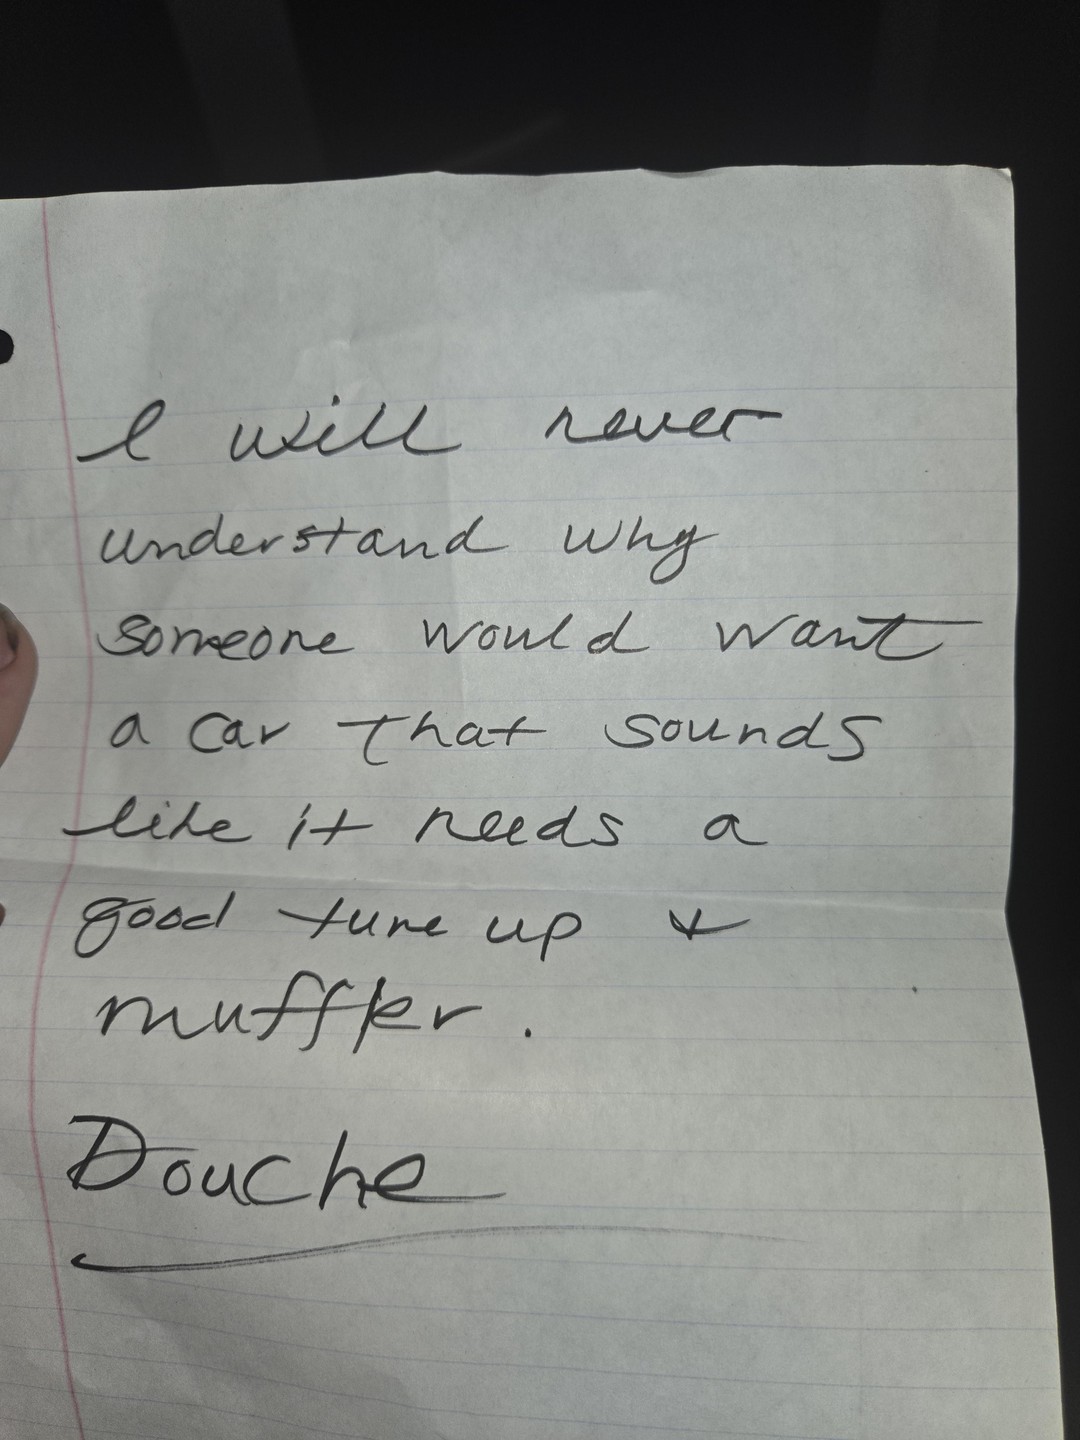 I will never
understand why
someone would want
a car that sounds
like it needs a
good tune up &
muffler.
Douche